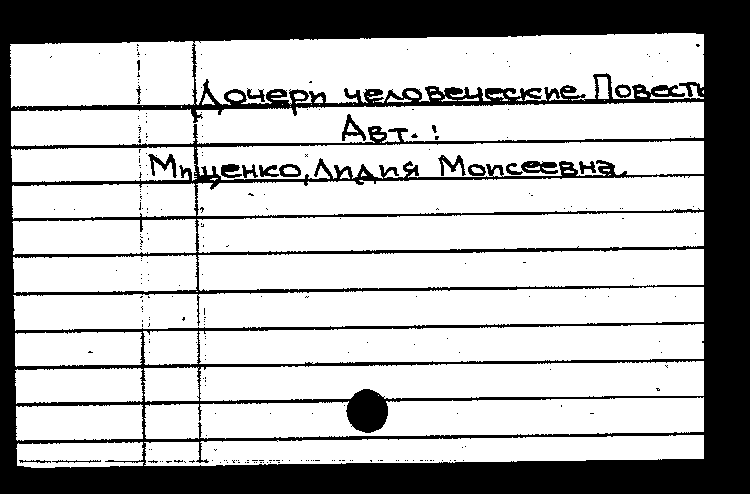 Дочери человеческие. Повесть
Авт.:
Мищенко, Лидия Моисеевна.